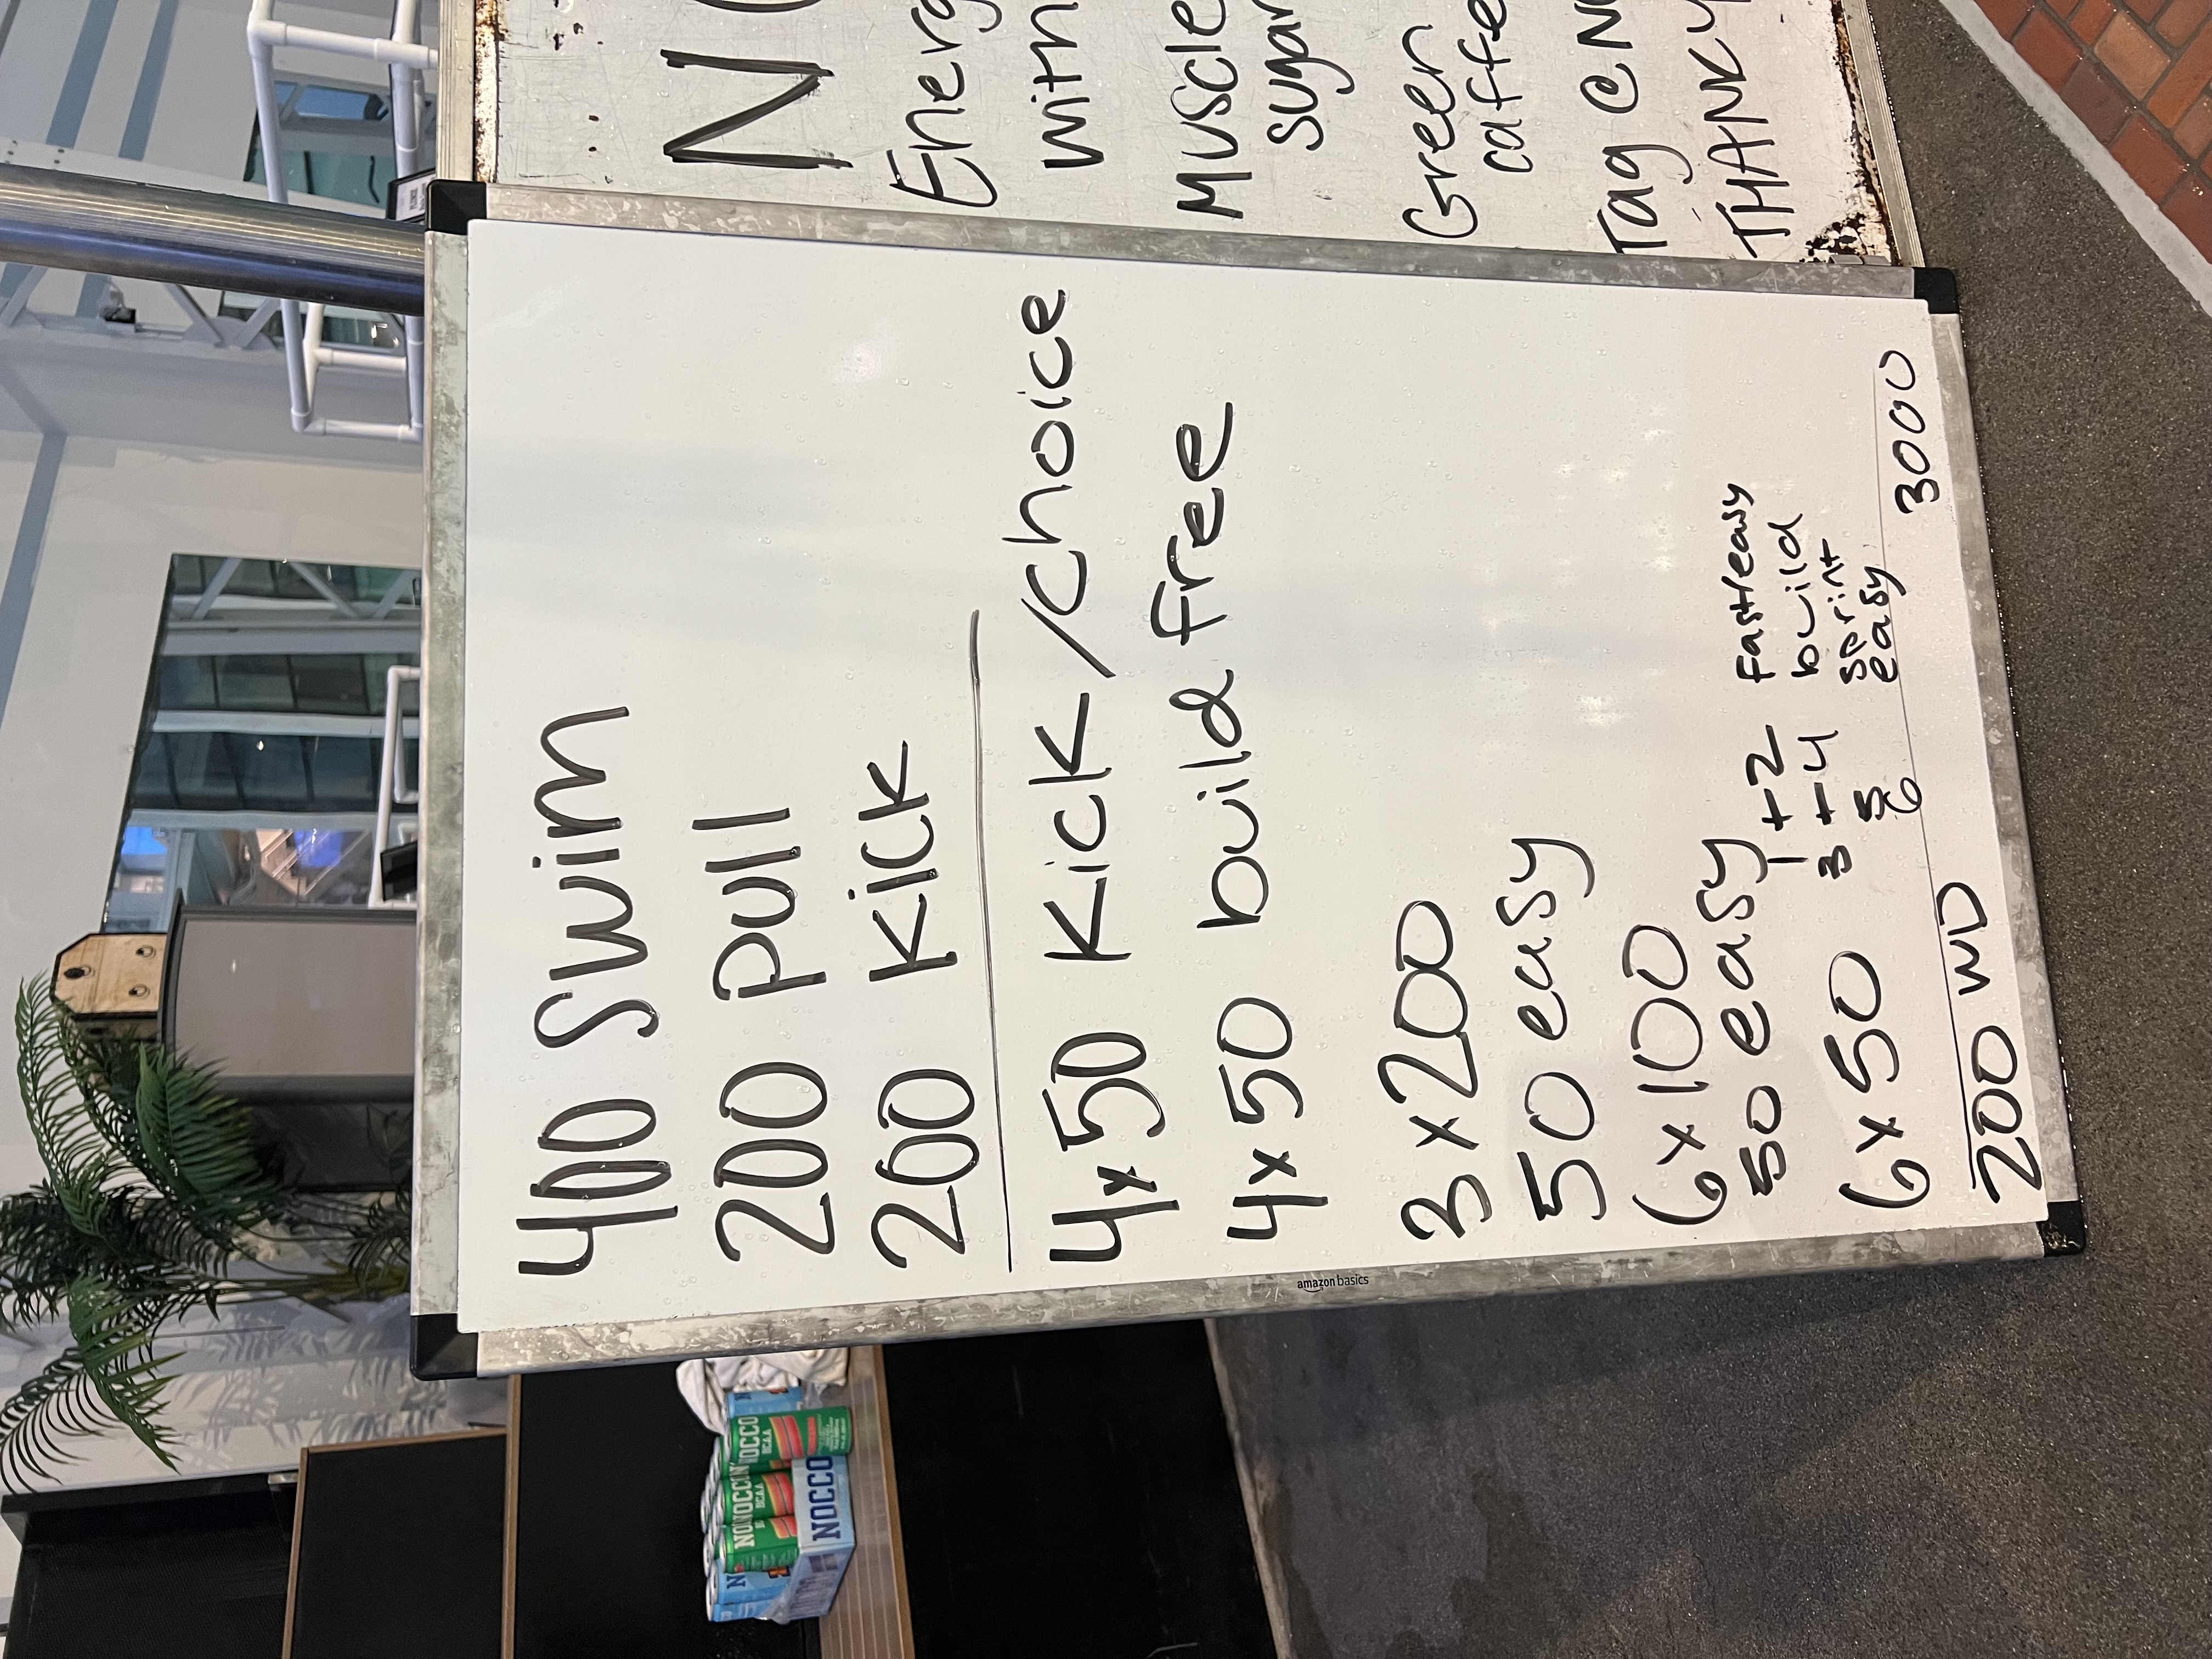 400 Swim
200 pull
200 Kick
4x50 Kick/choice
4x50 build free
3x200
50 easy
6x100
50 easy
6x50
1+2 fast/easy
3+4 build
5 sprint
6 easy
200 WD
3000
amazon basics
with
Muscle
sugar
Green
Tag @
NOCCO
NOCCO
BCAA